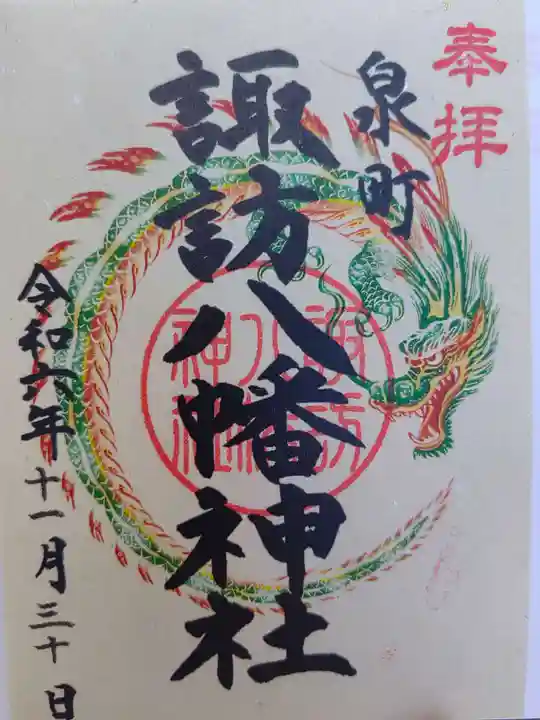 奉拝
泉町
諏訪八幡神社
諏訪
八幡
神社
令和六年十一月三十日